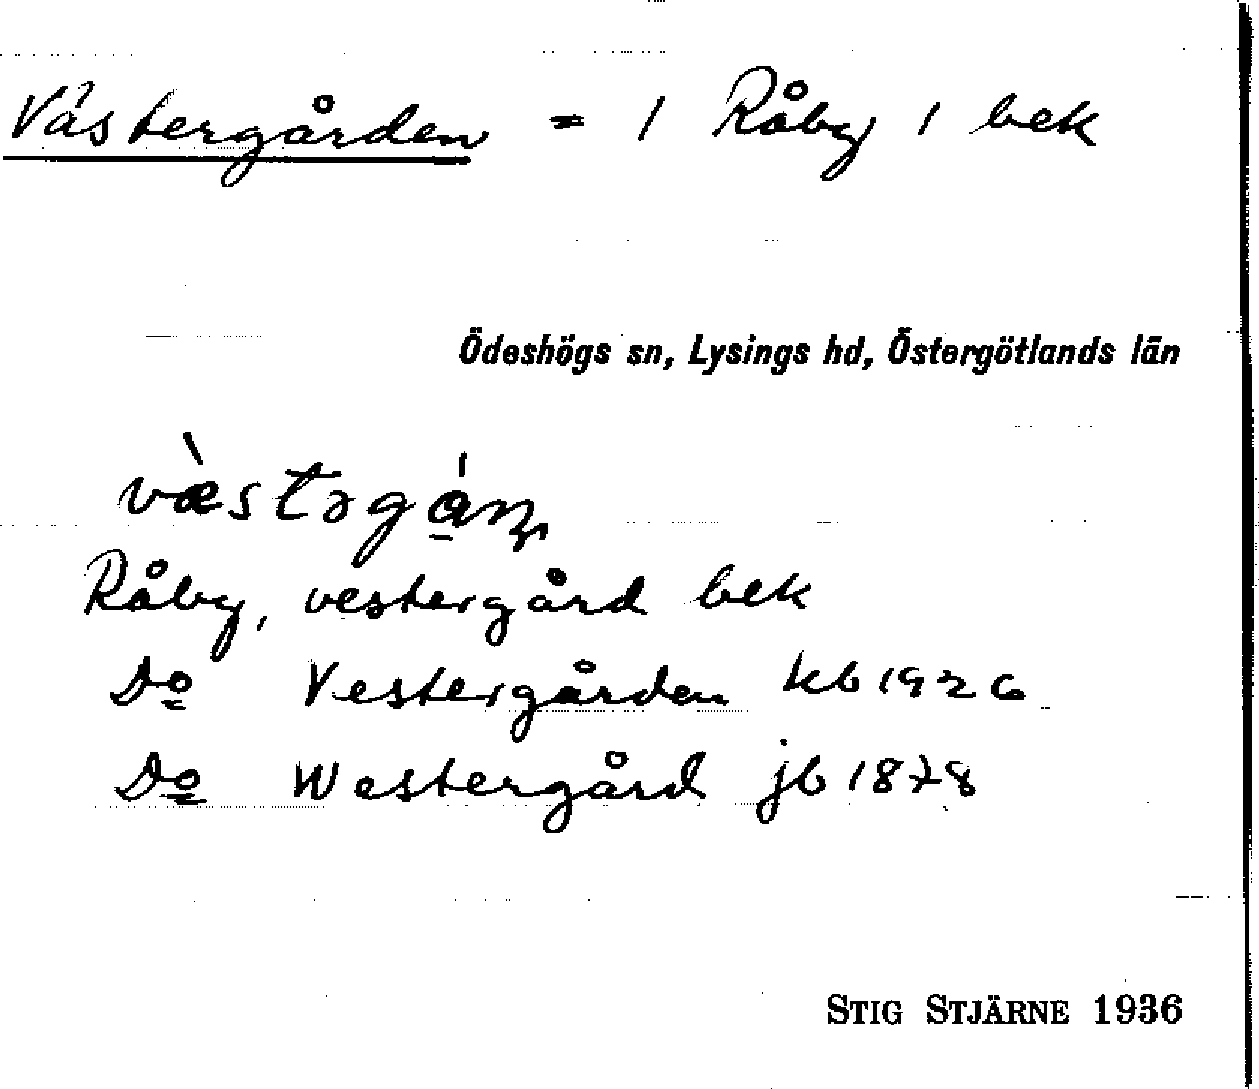 Västergården = 1 Råby 1 bek
Ödeshögs sn, Lysings hd, Östergötlands län
Råby, vestergård bek
Do Vestergården kb 1926
Do Westergård jb 1878
STIG STJÄRNE 1936